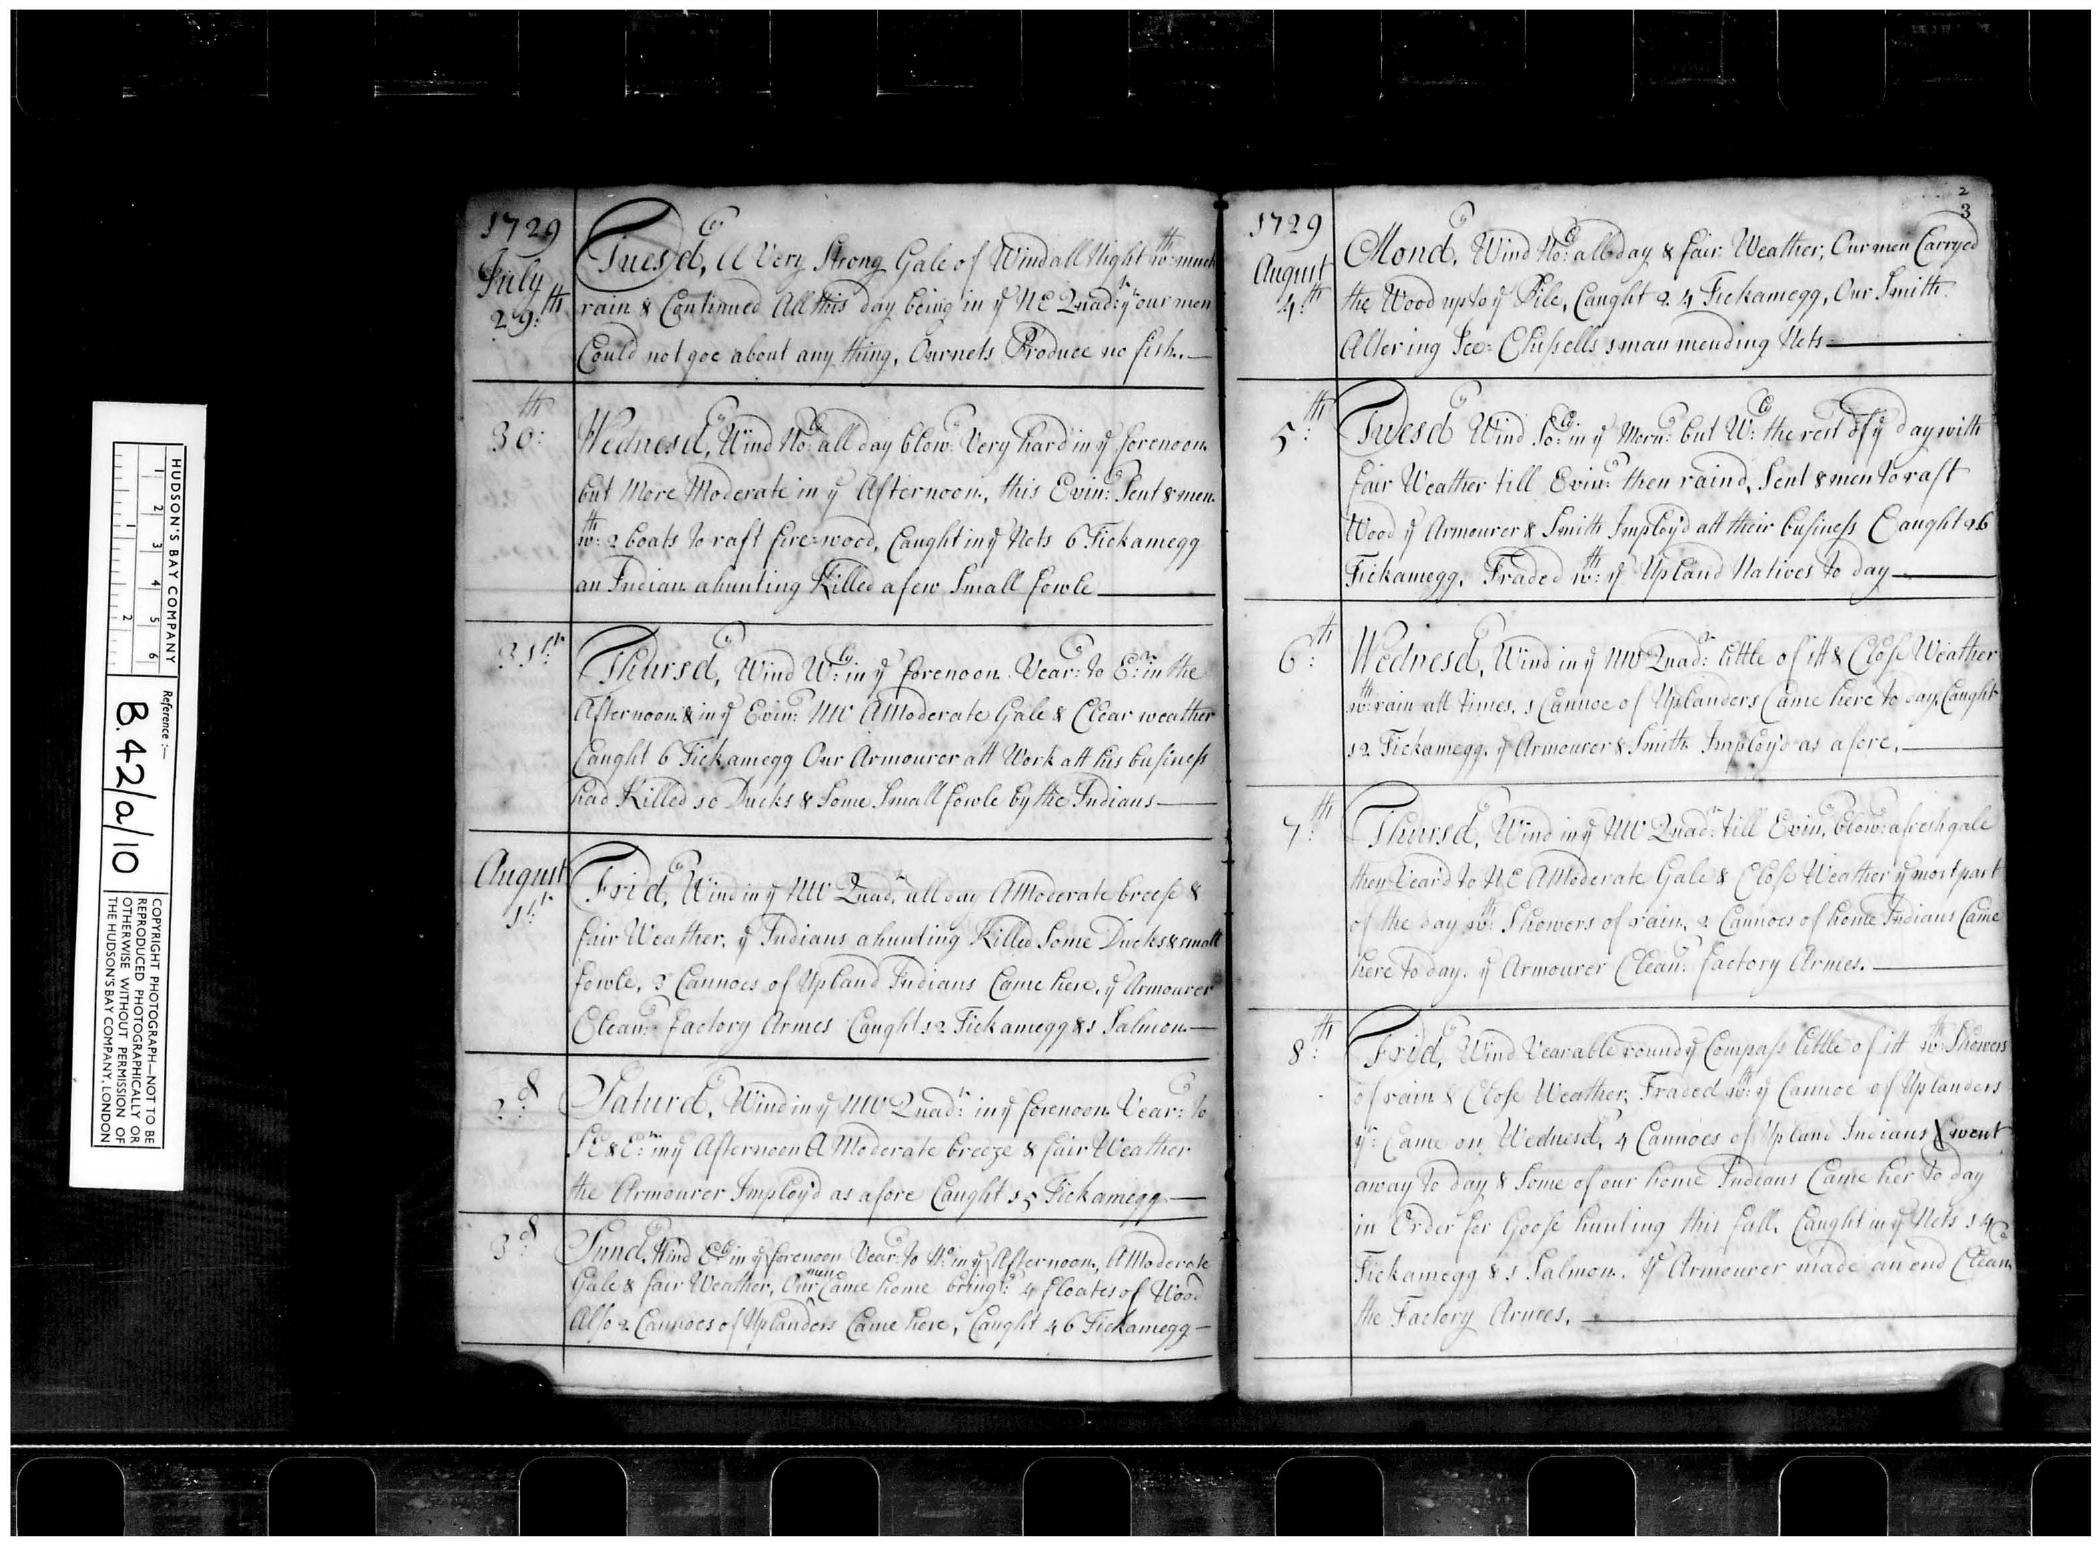 HUDSON'S BAY COMPANY
1 2 3 4 5 6
1 2
Reference :—
B.42/a/10
COPYRIGHT PHOTOGRAPH—NOT TO BE
REPRODUCED PHOTOGRAPHICALLY OR
OTHERWISE WITHOUT PERMISSION OF
THE HUDSON'S BAY COMPANY, LONDON
1729
July
29:th
Tuesd:y, A Very Strong Gale of Wind all Night wth: much
rain & Continued All this day being in ye NE Quad:r yt our men
Could not goe about any thing, Our nets Produce no fish.—
30:th
Wednesd:y, Wind No:ly all day blow:g Very hard in ye forenoon
but More Moderate in ye Afternoon, this Evin:g Sent 8 men
wth: 2 boats to raft fire=wood, Caught in ye Nets 6 Tickamegg
an Indian a hunting Killed a few Small fowle
31:st
Thursd:y, Wind W:ly in ye forenoon Vear:g to E:rn in the
Afternoon & in ye Evin:g NW A Moderate Gale & Clear weather
Caught 6 Tickamegg Our Armourer att Work att his business
had Killed 10 Ducks & Some Small fowle by the Indians—
August
1:st
Frid:y, Wind in ye NW Quad:r all day A Moderate breese &
fair Weather, ye Indians a hunting Killed Some Ducks & small
fowle, 3 Cannoes of Upland Indians Came here, ye Armourer
Clean:g factory Armes Caught 12 Tickamegg & 1 Salmon—
2:d
Saturd:y, Wind in ye NW Quad:r in ye forenoon Vear:g to
SE & E:rn in ye Afternoon A Moderate breeze & fair Weather
the Armourer Imploy'd as afore Caught 15 Tickamegg—
3:d
Sund:y, Wind E:ly in ye forenoon Vear:g to No: in ye Afternoon, A Moderate
Gale & fair Weather, Our men Came home bring:g 4 floates of Wood
Also 2 Cannoes of Uplanders Came here, Caught 46 Tickamegg—
2
3
1729
August
4:th
Mond:y, Wind No:ly all day & fair Weather, Our men Carryed
the Wood up to ye Pile, Caught 24 Tickamegg, Our Smith
Altering Ice=Chissells 1 man mending Nets
5:th
Tuesd:y Wind So:ly in ye Morn:g but W:ly the rest of ye day with
fair Weather till Evin:g then raind, Sent 8 men to raft
Wood ye Armourer & Smith Imploy'd att their business Caught 26
Tickamegg, Traded wth: ye Upland Natives to day
6:th
Wednesd:y, Wind in ye NW Quad:r little of itt & Close Weather
wth: rain att times, 1 Cannoe of Uplanders Came here to day, Caught
12 Tickamegg, ye Armourer & Smith Imploy'd as afore,
7:th
Thursd:y, Wind in ye NW Quad:r till Evin:g, blow:g a fresh gale
then Vear'd to NE A Moderate Gale & Close Weather ye most part
of the day wth: Showers of rain, 2 Cannoes of home Indians Came
here to day, ye Armourer Clean:g factory Armes.
8:th
Frid:y, Wind Vearable round ye Compass little of itt wth: Showers
of rain & Close Weather, Traded wth: ye Cannoe of Uplanders
yt: Came on Wednesd:y, 4 Cannoes of Upland Indians went
away to day & Some of our home Indians Came her to day
in Order for Goose hunting this fall, Caught in ye Nets 14
Tickamegg & 1 Salmon, ye Armourer made an end Clean:g
the Factory Armes,